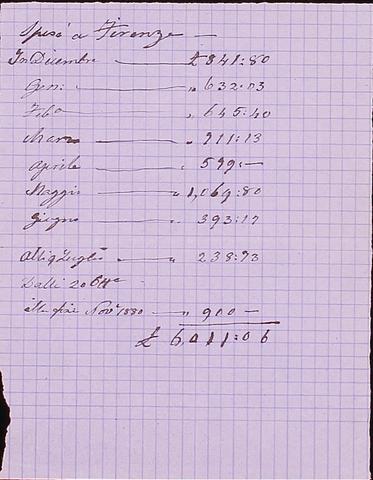 Spese a Firenze —
In Dicembre — £ 841:80
Genn. — " 632:03
Febo " 645:40
Marzo — " 711:13
Aprile — " 579:—
Maggio — " 1,069:80
Giugno — " 393:17
Alli 9 Luglio — " 238:73
Dalli 20 Otte
alla fine Nove 1880 — " 900 —
£ 6,011:06